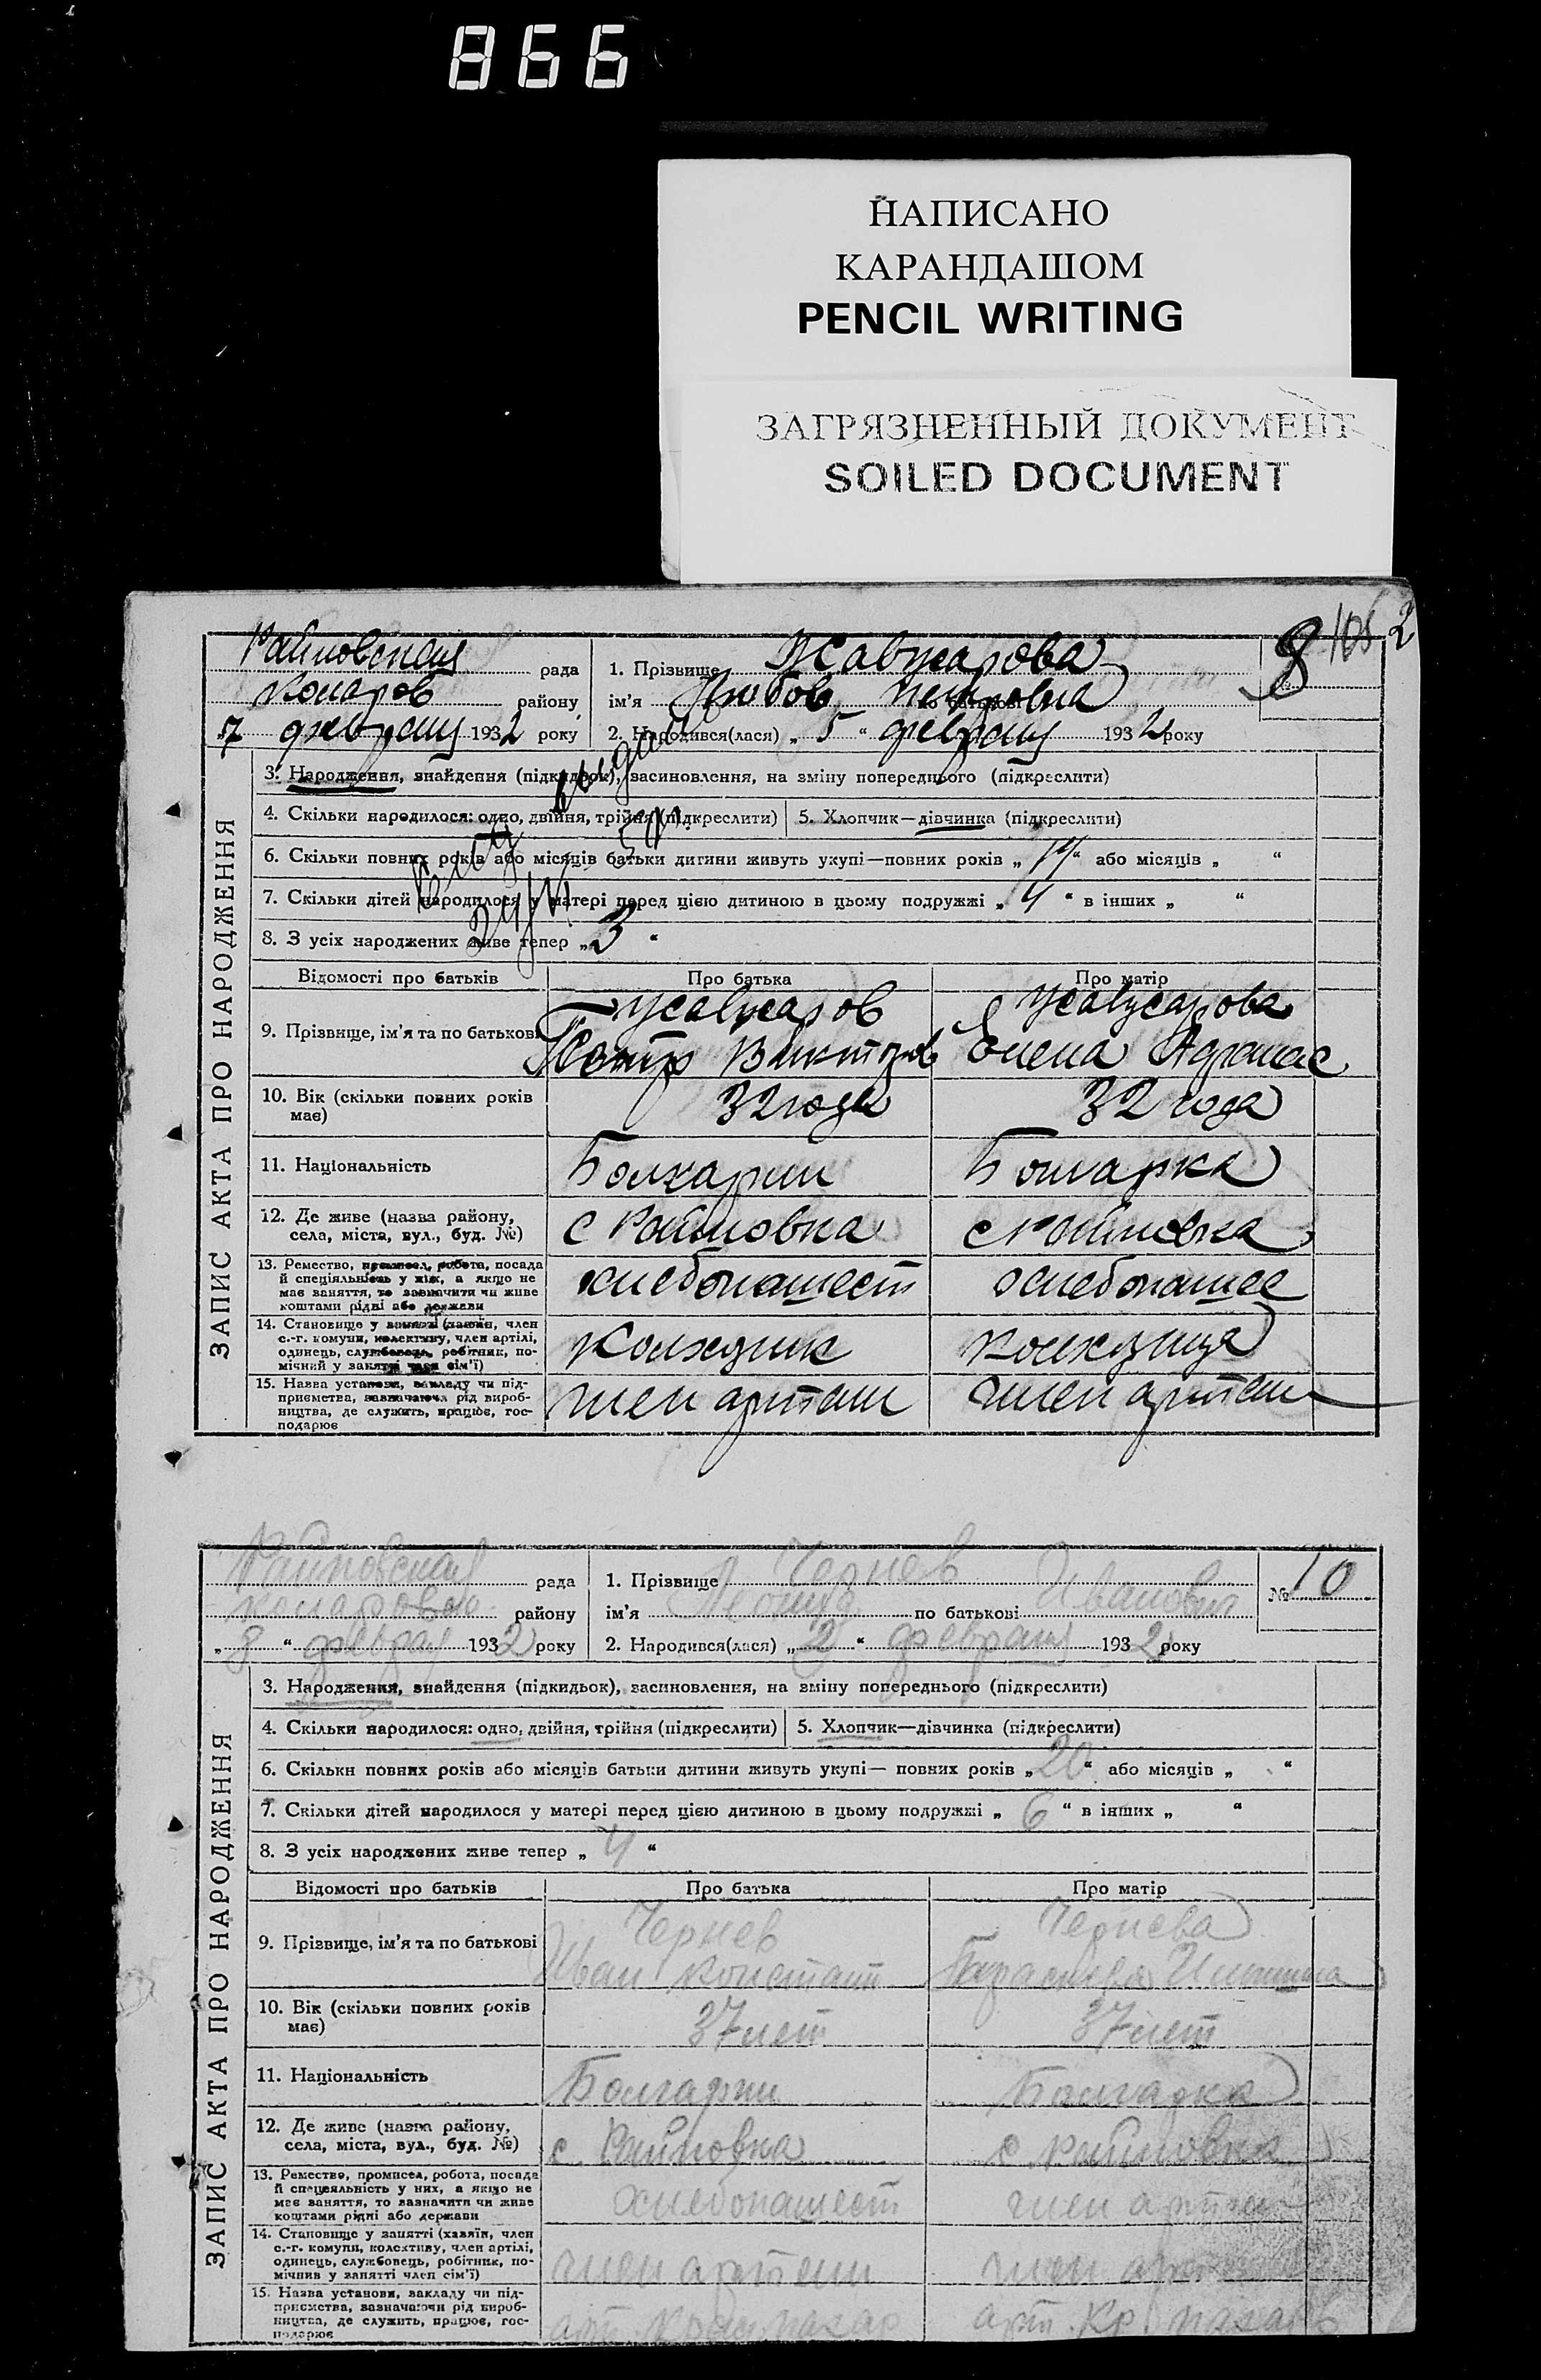 866
НАПИСАНО
КАРАНДАШОМ
PENCIL WRITING
ЗАГРЯЗНЕННЫЙ ДОКУМЕНТ
SOILED DOCUMENT
Райновская рада
Коларов району
7 февраля 1932 року
1. Прізвище Жавжарова
ім'я Любов Петровна
2. Народився(лася) „ 5 “ февраля 1932 року
8
ЗАПИС АКТА ПРО НАРОДЖЕННЯ
3. Народження, знайдення (підкидьок), засиновлення, на зміну попереднього (підкреслити)
4. Скільки народилося: одно, двійня, трійня (підкреслити) 5. Хлопчик—дівчинка (підкреслити)
6. Скільки повних років або місяців батьки дитини живуть укупі—повних років „ “ або місяців „ “
7. Скільки дітей народилося у матері перед цією дитиною в цьому подружжі „ 4 “ в інших „ “
8. З усіх народжених живе тепер „ 3 “
Відомості про батьків Про батька Про матір
9. Прізвище, ім'я та по батькові
Жавжаров
Петр Виктор
Жавжарова
Елена Афанас
10. Вік (скільки повних років
має)
32 года
32 года
11. Національність
Болгарин
Болгарка
12. Де живе (назва району,
села, міста, вул., буд. №)
с Райновка
с Райновка
13. Ремество, промисел, робота, посада
й спеціяльність у них, а якщо не
має заняття, то зазначити чи живе
коштами рідні або держави
хлебопашест
хлебопашес
14. Становище у занятті (хазяїн, член
с.-г. комуни, колективу, член артілі,
одинець, службовець, робітник, по-
мічний у занятті член сім'ї)
Колхозник
колхозница
15. Назва установи, закладу чи під-
приємства, зазначаючи рід вироб-
ництва, де служить, працює, гос-
подарює
член артели
член артели
Райновская рада
Коларовского району
„ 8 “ февраля 1932 року
1. Прізвище Чернев
ім'я по батькові Иванович
2. Народився(лася) „ 2 “ февраля 1932 року
№ 10
ЗАПИС АКТА ПРО НАРОДЖЕННЯ
3. Народження, знайдення (підкидьок), засиновлення, на зміну попереднього (підкреслити)
4. Скільки народилося: одно, двійня, трійня (підкреслити) 5. Хлопчик—дівчинка (підкреслити)
6. Скільки повних років або місяців батьки дитини живуть укупі— повних років „ 20 “ або місяців „ “
7. Скільки дітей народилося у матері перед цією дитиною в цьому подружжі „ 6 “ в інших „ “
8. З усіх народжених живе тепер „ 4 “
Відомості про батьків Про батька Про матір
9. Прізвище, ім'я та по батькові
Чернев
Иван Констант
Чернева
Параскева
10. Вік (скільки повних років
має)
37 лет
37 лет
11. Національність
Болгарин
Болгарка
12. Де живе (назва району,
села, міста, вул., буд. №)
с. Райновка
с. Райновка
13. Ремество, промисел, робота, посада
й спецеяльність у них, а якщо не
має заняття, то зазначити чи живе
коштами рідні або держави
Хлебопашест
член артели
14. Становище у занятті (хазяїн, член
с.-г. комуни, колективу, член артілі,
одинець, службовець, робітник, по-
мічнив у занятті член сім'ї)
член артели
член артели
15. Назва установи, закладу чи під-
приємства, зазначаючи рід вироб-
ництва, де служить, працює, гос-
подарює
арт. пахар
арт. Кр. пахарь